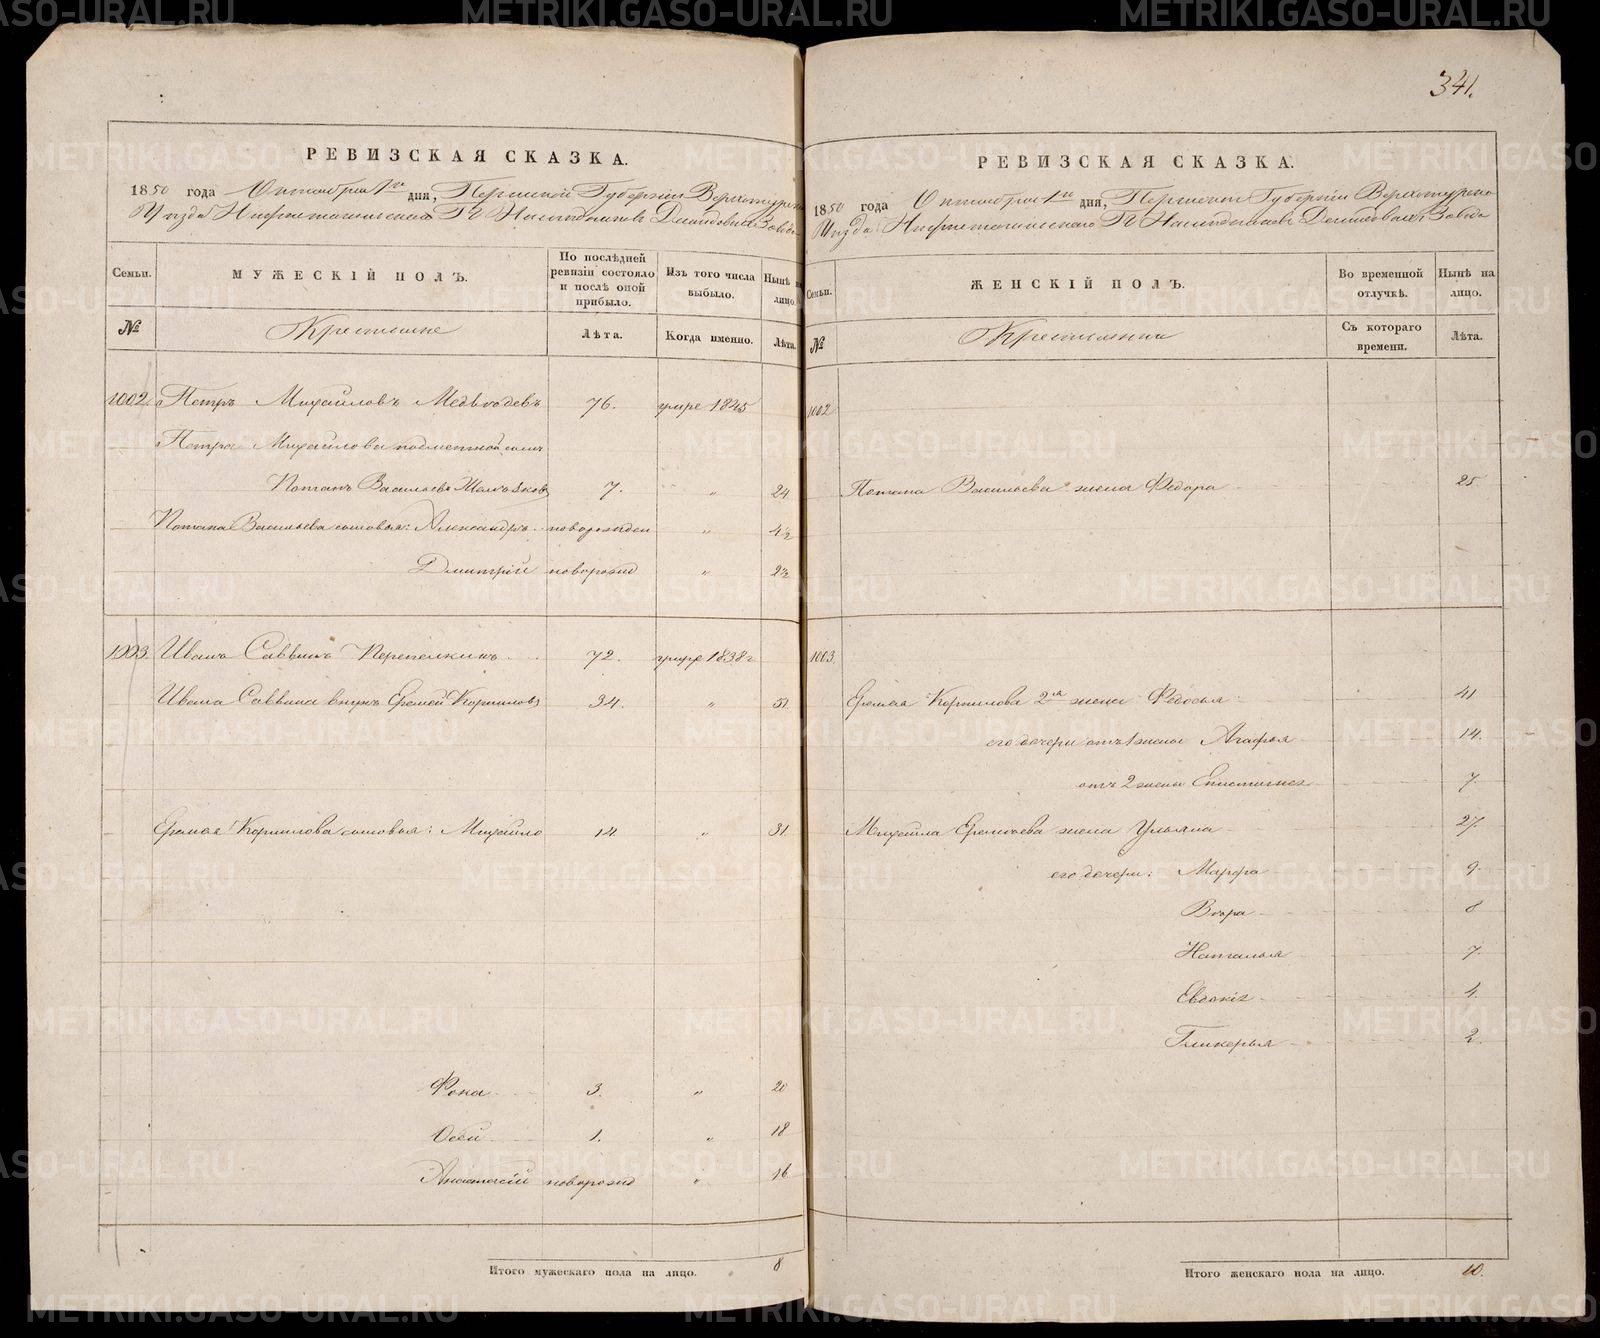 341.
РЕВИЗСКАЯ СКАЗКА.
1850 года Октября 1го дня, Пермской Губернии Верхотурско
Уезда Нижнетагильскаго Гг Наследниковъ Демидовыхъ Завода
Семьи. МУЖЕСКІЙ ПОЛЪ. По послѣдней ревизіи состояло и послѣ оной прибыло. Изъ того числа выбыло. Нынѣ на лицо.
№ Крестьяне Лѣта. Когда именно. Лѣта.
1002. Петръ Михайловъ Медвѣдевъ 76. умре 1845
Петра Михайлова подметной сынъ
Потапъ Васильевъ 7. " 24
Потапа Васильева сыновья: Александръ новорожден " 4½
Дмитрій новорожд " 2½
1003. Иванъ Саввинъ Перепелкинъ 72. умре 1838г
Ивана Саввина внукъ Еремей Корниловъ 34. " 51.
Еремея Корнилова сыновья: Михайло 14 " 31.
Фока 3. " 20
Осей 1. " 18
Анастасій новорожд " 16
Итого мужескаго пола на лицо. 8
РЕВИЗСКАЯ СКАЗКА.
1850 года Октября 1го дня, Пермской Губерніи Верхотурско
Уезда Нижнетагильскаго Гг Наследниковъ Демидовыхъ Завода
Семьи. ЖЕНСКІЙ ПОЛЪ. Во временной отлучкѣ. Нынѣ на лицо.
№ Крестьянки Съ котораго времени. Лѣта.
1002
Потапа Васильева жена Федора 25
1003.
Еремея Корнилова 2я жена Федосья 41
его дочери отъ 1 жены Агафья 14.
отъ 2 жены Епистимея 7.
Михайла Еремеева жена Ульяна 27.
его дочери: Марфа 9.
Вѣра 8
Наталья 7.
Евдокія 4.
Гликерья 2.
Итого женскаго пола на лицо. 10.
METRIKI.GASO-URAL.RU